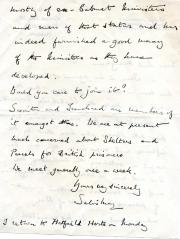 mostly of ex-Cabinet Ministers
and men of that status and has
indeed furnished a good many
of the Ministers as they have
developed.
Would you care to join it?
Smith and are members of
it amongst them. We are at present
much concerned about Shelters and
Parcels for British prisoners
We meet generally once a week.
Yours very sincerely
Salisbury
I return to Hatfield Herts on Monday